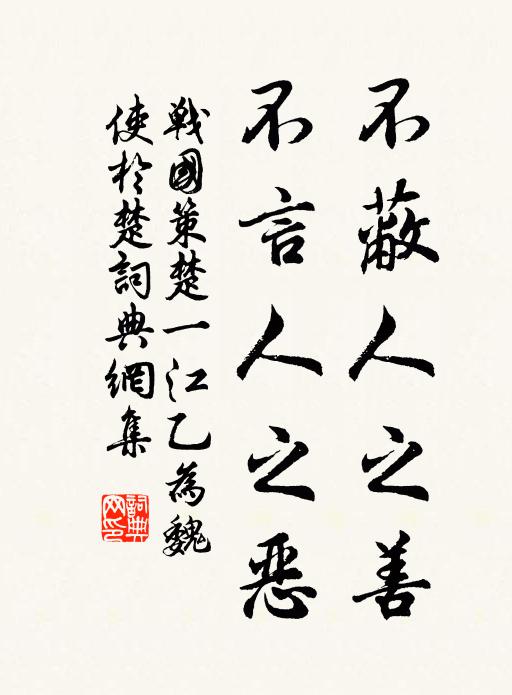 不蔽人之善
不言人之恶
戰國策楚一江乙為魏
使於楚詞典網集
詞典
网印